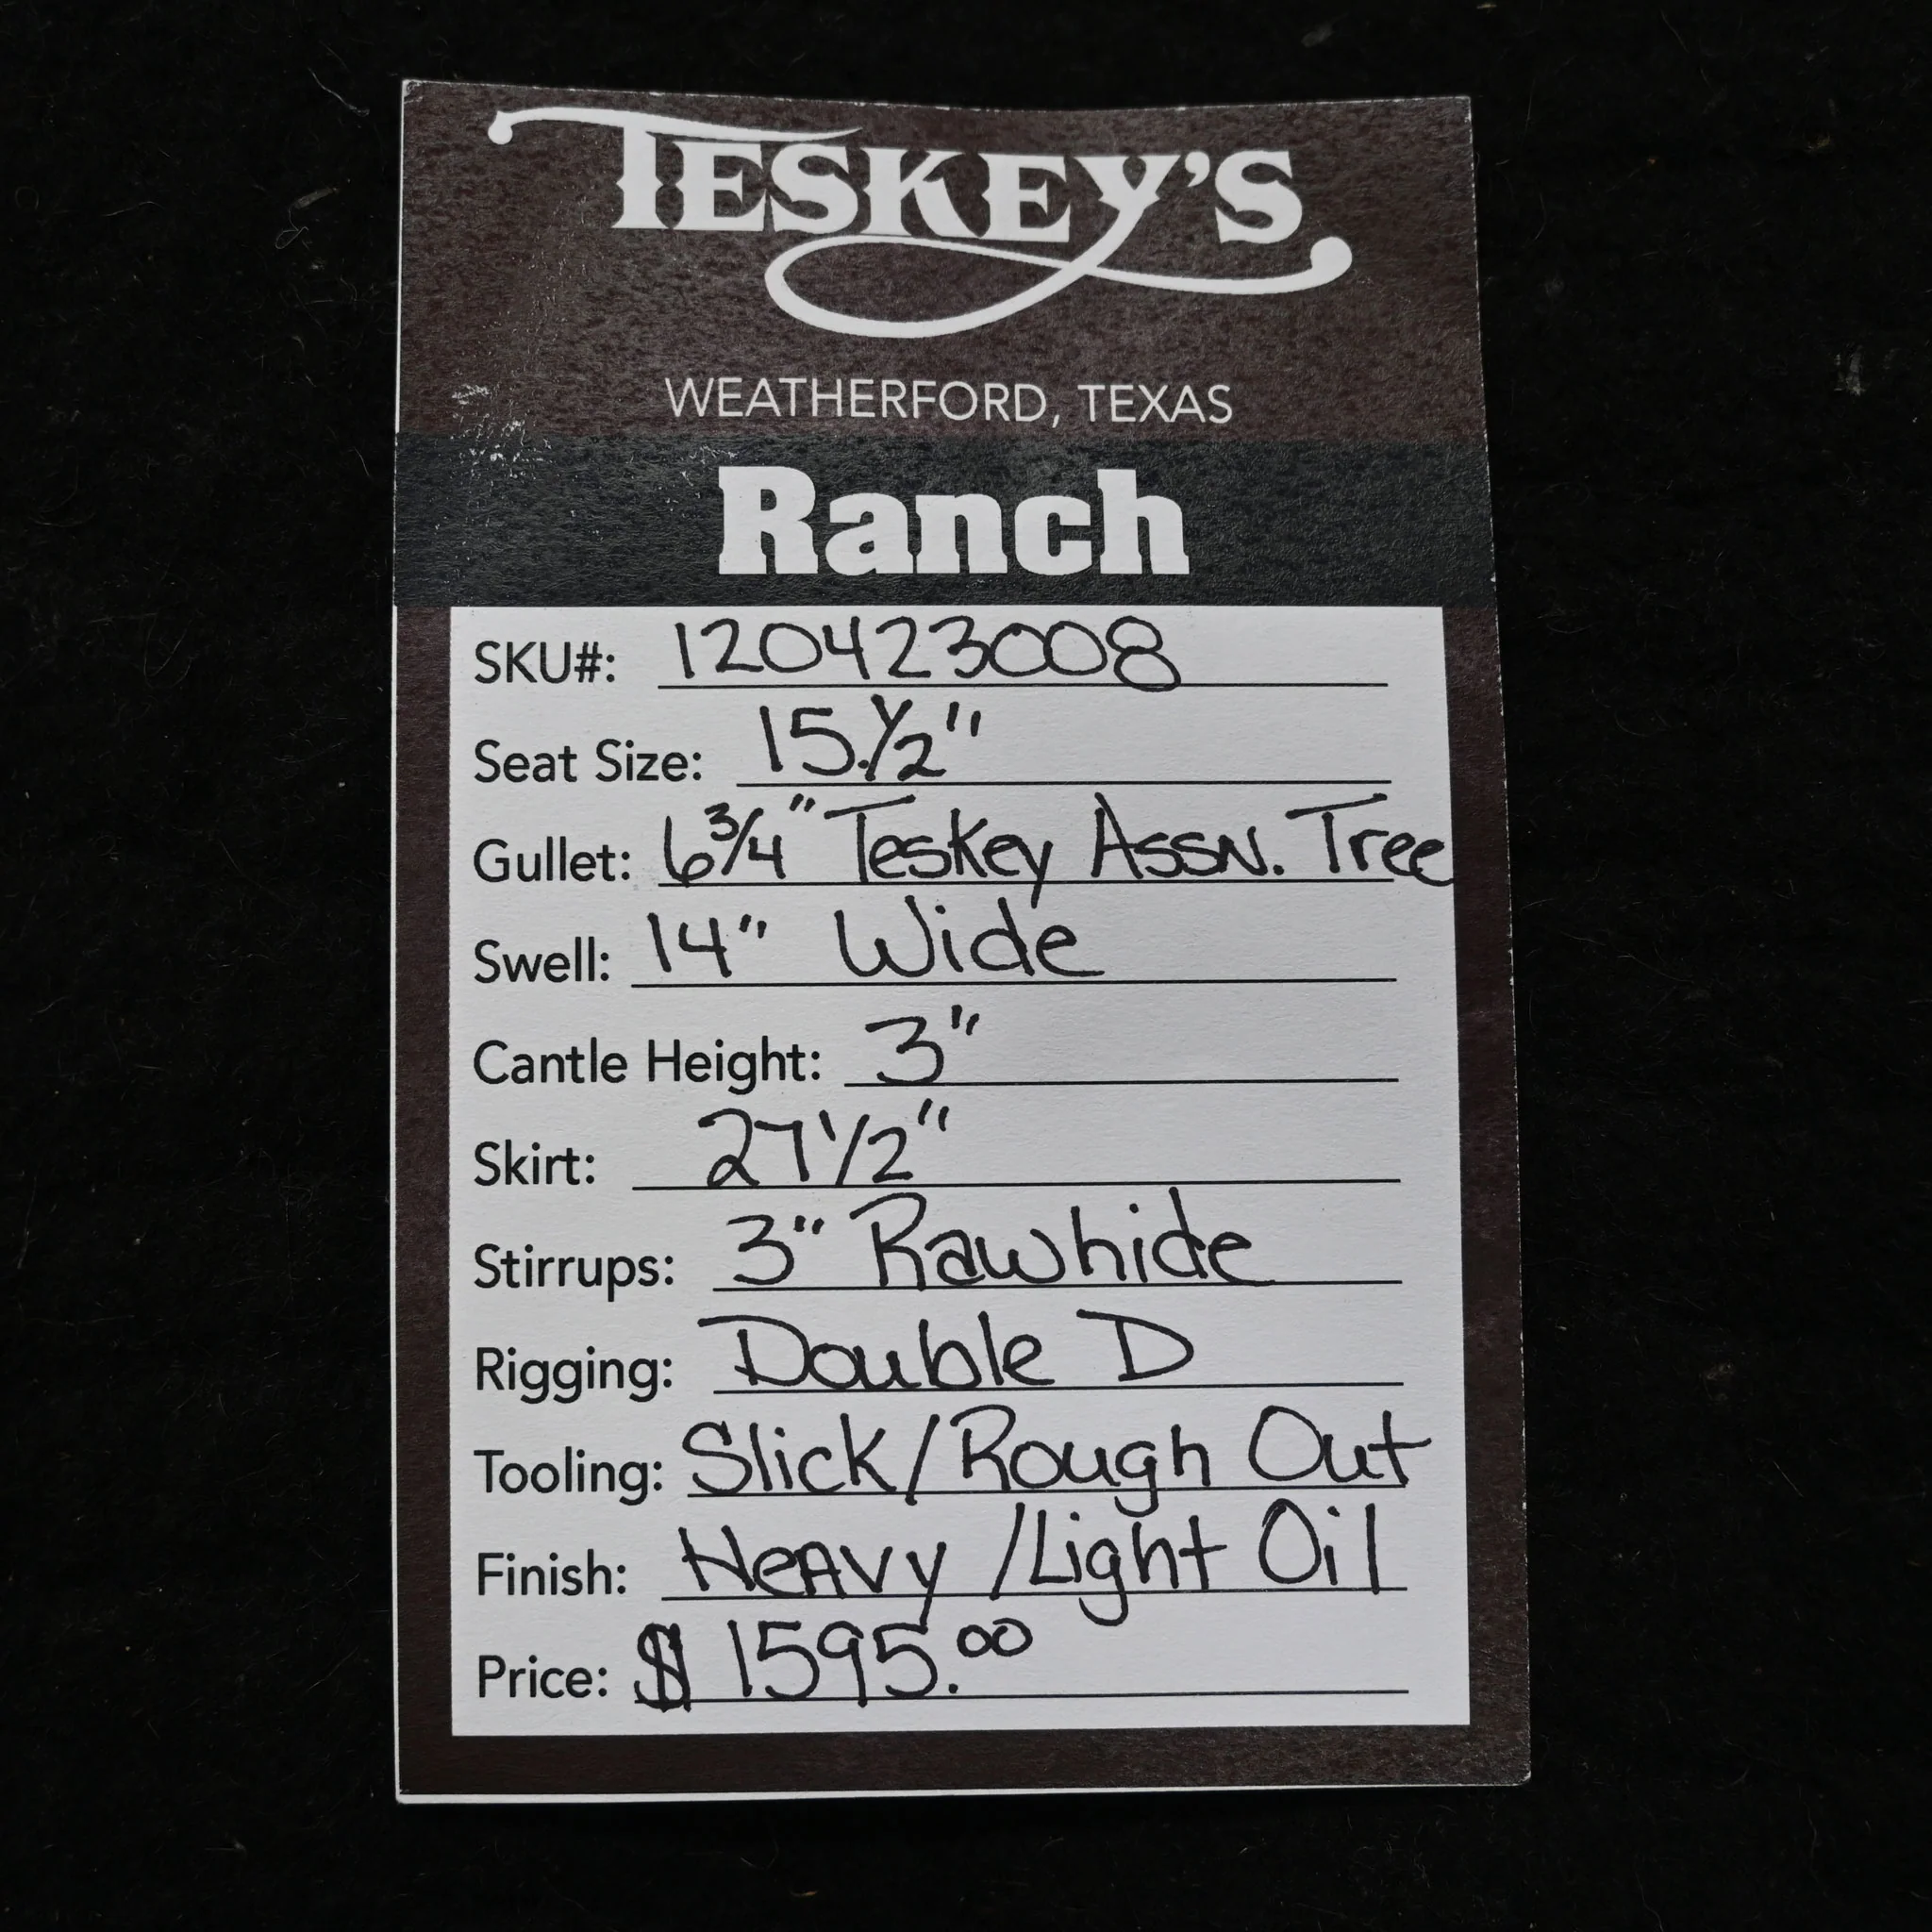 TESKEY'S
WEATHERFORD, TEXAS
Ranch
SKU#: 120423008
Seat Size: 15.1/2"
Gullet: 6 3/4" Teskey Assn. Tree
Swell: 14" Wide
Cantle Height: 3"
Skirt: 27 1/2"
Stirrups: 3" Rawhide
Rigging: Double D
Tooling: Slick/Rough Out
Finish: Heavy/Light Oil
Price: $1595.00